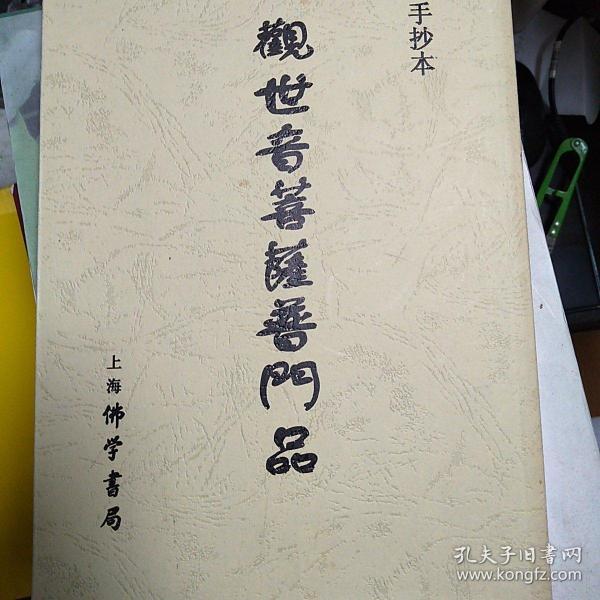 手抄本
觀世音菩薩普門品
上海佛学書局
孔夫子旧书网
www.kongfz.com